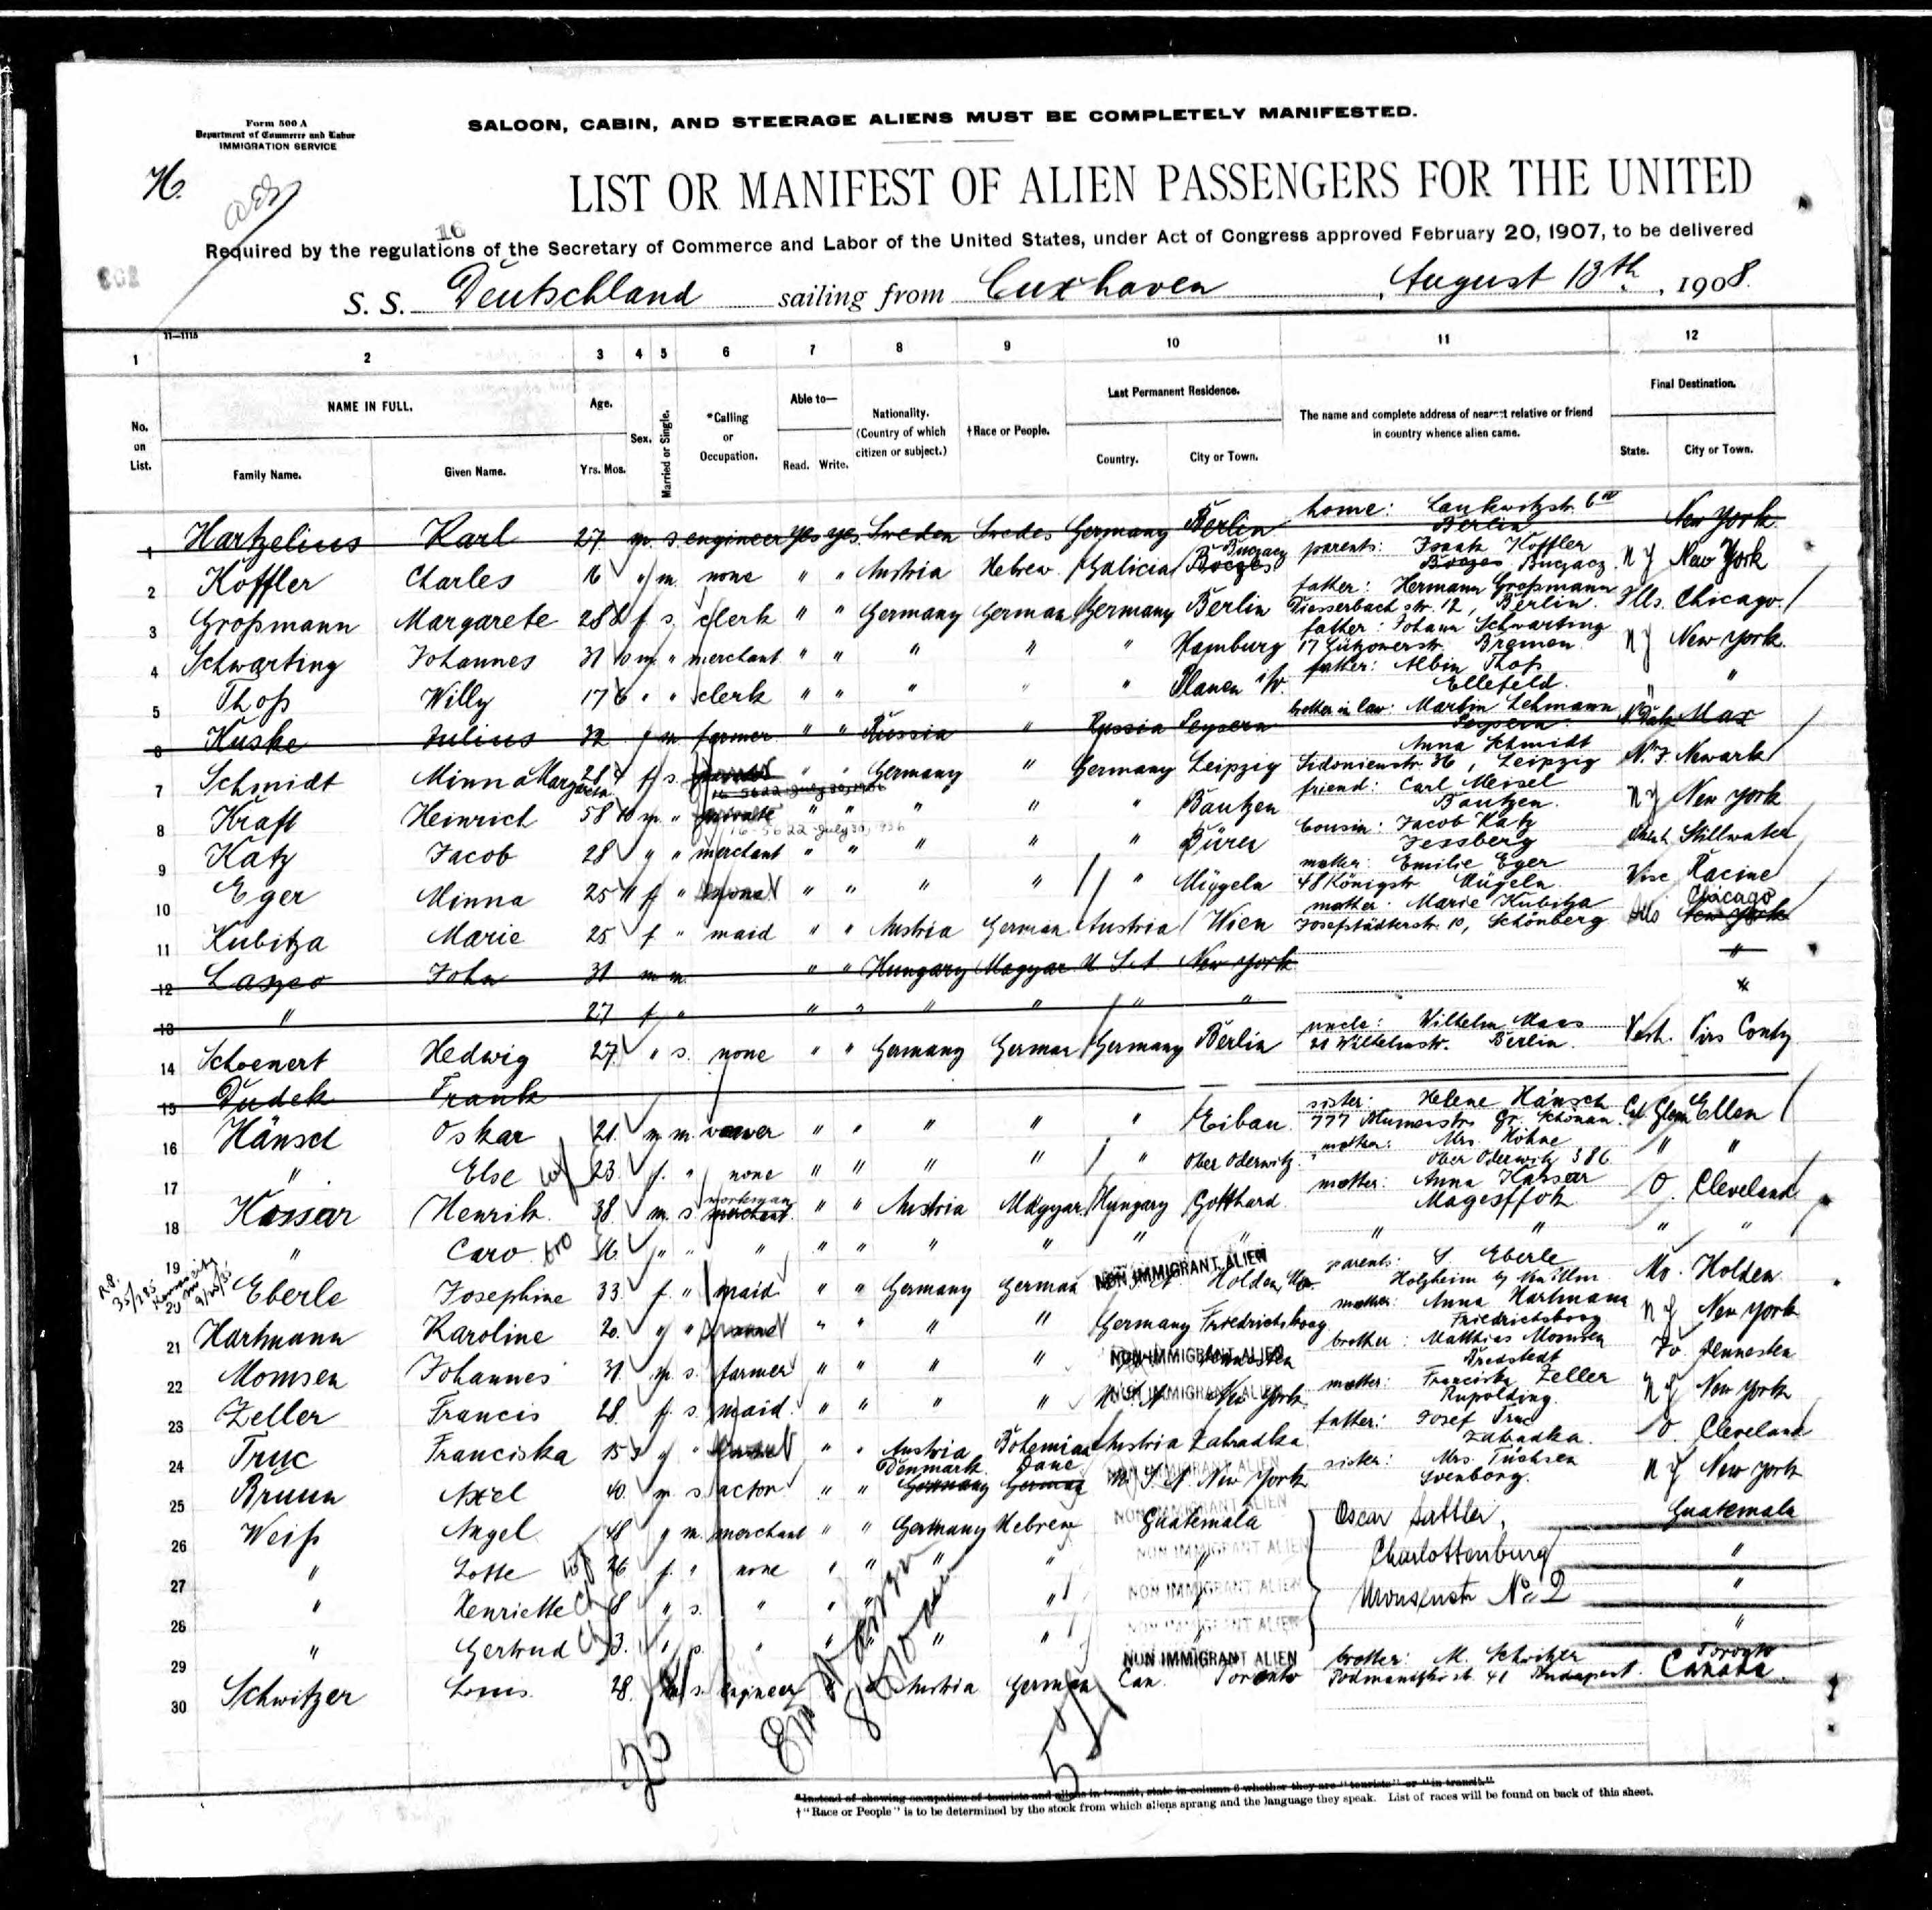 Form 500 A
Department of Commerce and Labor
IMMIGRATION SERVICE
SALOON, CABIN, AND STEERAGE ALIENS MUST BE COMPLETELY MANIFESTED.
H.
LIST OR MANIFEST OF ALIEN PASSENGERS FOR THE UNITED
16
Required by the regulations of the Secretary of Commerce and Labor of the United States, under Act of Congress approved February 20, 1907, to be delivered
S. S. Deutschland sailing from Cuxhaven, August 13th, 1908.
11—1115
1 2 3 4 5 6 7 8 9 10 11 12
No. on List. NAME IN FULL. Family Name. Given Name. Age. Yrs. Mos. Sex. Married or Single. *Calling or Occupation. Able to— Read. Write. Nationality. (Country of which citizen or subject.) †Race or People. Last Permanent Residence. Country. City or Town. The name and complete address of nearest relative or friend in country whence alien came. Final Destination. State. City or Town.
1 Hartzelius Karl 27 m s engineer yes yes Sweden Swedes Germany Berlin home: Lankwitzstr. 6 Berlin New York
2 Koffler Charles 16 " m none " " Austria Hebrew Galicia Buczacz parents: Koffler Buczacz N Y New York
3 Großmann Margarete 28 f s clerk " " Germany German Germany Berlin father: Hermann Großmann str. 12, Berlin. Ills. Chicago
4 Schwarting Johannes 31 10 m " merchant " " " " " Hamburg father: Johann Schwarting 17 Bremen N Y New York.
5 Thoß Willy 17 6 " " clerk " " " " " Plauen i/V. father: Albin Thoß Ellefeld. " "
6 Kuske Julius 32 m farmer " " Russia " Russia Peysern brother in law: Martin Lehmann Peysern N Dak Max
7 Schmidt Minna Margareta 28 f s. " " Germany " Germany Leipzig Anna Schmidt Sidonienstr. 36, Leipzig N. J. Newark
16-5622 July 30, 1936
8 Kraft Heinrich 58 10 m " private " " " " " Bautzen friend: Carl Meisel Bautzen. N Y New York
16-5622 July 30, 1936
9 Katz Jacob 28 " " merchant " " " " " Düren cousin: Jacob Katz Jessberg Stillwater
10 Eger Minna 25 11 f " none " " " " " Mügeln mother: Emilie Eger 48 Königstr Mügeln Wisc Racine
11 Kubitza Marie 25 f " maid " " Austria German Austria Wien mother: Marie Kubitza Josefstädterstr. 10, Schönberg Ills Chicago New York
12 Laszco John 31 m m. " " Hungary Magyar U. S. A New York "
13 " 27 f " " " " " " " "
14 Schoenert Hedwig 27 " s. none " " Germany German Germany Berlin uncle: Wilhelm Maas 21 Wilhelmstr. Berlin
15 Dudek Frank
16 Hänsch Oskar 21 m m " " " " " Eibau sister: Helene Hänsch 777 Gr. Schönau. Cal Glen Ellen
17 " Else wf 23 f. " none " " " " " Ober Oderwitz mother: Mrs. Höhne Ober Oderwitz 386 " "
18 Kassar Henrik 38 m. s workman merchant " " Austria Magyar Hungary Gotthard mother: Anna Kassar O. Cleveland
19 " bro 16 " " " " " " " " " " " " "
Eberle Josephine 33 f. " maid " " Germany German NON IMMIGRANT ALIEN Holden, Mo. parents: S Eberle Holzheim Mo. Holden
21 Hartmann Karoline 20. " " " " " " Germany Friedrichskoog mother: Anna Hartmann Friedrichskoog N Y New York
22 Momsen Johannes 31 m s. farmer " " " " NON IMMIGRANT ALIEN brother: Matthias Momsen Bredstedt
23 Zeller Francis 28. f. s maid. " " " " NON IMMIGRANT ALIEN New York mother: Franciska Zeller Rupolding. N Y New York
24 Truc Franciska 15 3 " " " " Austria Bohemian Austria Zahradka father: Josef Truc Zahradka. O. Cleveland
25 Bruun Axel 40. m. s actor " " Denmark Germany Dane German NON IMMIGRANT ALIEN New York sister: Mrs. Tüchsen Svenborg. N Y New York
26 Weiß Angel 48 " m. merchant " " Germany Hebrew NON IMMIGRANT ALIEN Guatemala Oscar Sattler, Guatemala
27 " Lotte wf 26 f. " none " " " " NON IMMIGRANT ALIEN " Charlottenburg "
28 " Henriette ch 8 " s. " " " " NON IMMIGRANT ALIEN No. 2 "
29 " Gertrud ch 3. " s. " " " " " NON IMMIGRANT ALIEN "
30 Schwitzer Louis 28. m s. engineer " " Austria German NON IMMIGRANT ALIEN Can. Toronto brother: M. Schwitzer 41 Budapest. Toronto Canada.
20
51
*Instead of showing occupation of tourists and aliens in transit, state in column 6 whether they are "tourists" or "in transit."
†"Race or People" is to be determined by the stock from which aliens sprang and the language they speak. List of races will be found on back of this sheet.